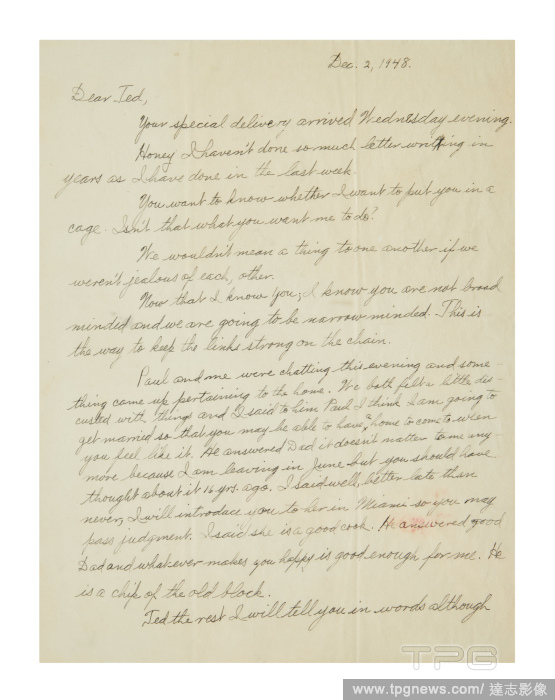 Dec. 2, 1948.
Dear Ted,
Your special delivery arrived Wednesday evening.
Honey I haven't done so much letter writing in
years as I have done in the last week.
You want to know whether I want to put you in a
cage. Isn't that what you want me to do?
We wouldn't mean a thing to one another if we
weren't jealous of each, other.
Now that I know you, I know you are not broad
minded and we are going to be narrow minded. This is
the way to keep the links strong on the chain.
Paul and me were chatting this evening and some-
thing came up pertaining to the home. We both felt a little dis-
custed with things and I said to him Paul I think I am going to
get married so that you may be able to have a home to come to when
you feel like it. He answered Dad it doesn't matter to me any-
more because I am leaving in June but you should have
thought about it 16 yrs. ago. I said well, better late than
never, I will introduce you to her in Miami so you may
pass judgment. I said she is a good cook. He answered good
Dad and what-ever makes you happy is good enough for me. He
is a chip of the old block.
Ted the rest I will tell you in words although
TPG
www.tpgnews.com/ 達志影像